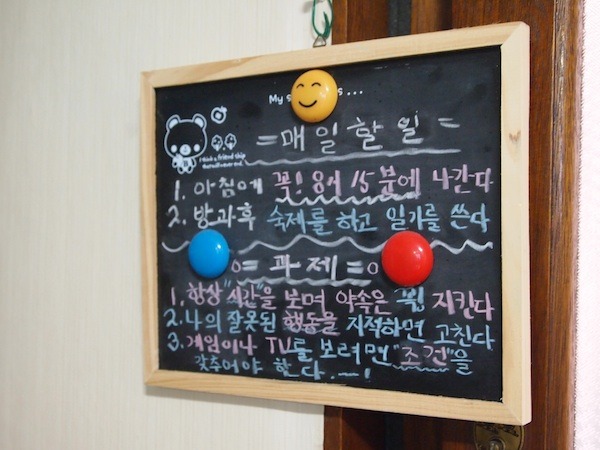 My s...s...
I think a friend ship
that will never end.
=매일할일=
1. 아침에 꼭! 8시 15분에 나간다
2. 방과후 숙제를 하고 일기를 쓴다
o=과제=o
1. 항상 "시간"을 보며 약속은 꼭 지킨다
2. 나의 잘못된 행동을 지적하면 고친다
3. 게임이나 TV를 보려면 "조건"을
갖추어야 한다.—!